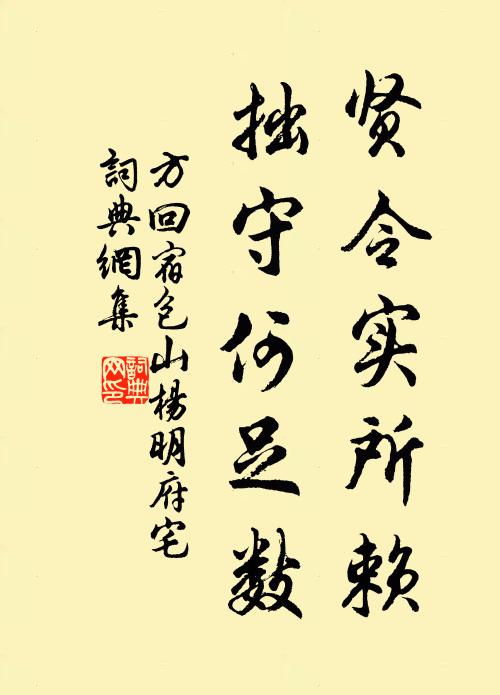 贤令实所赖
拙守何足数
方回宿包山杨明府宅
詞典網集
詞典網印